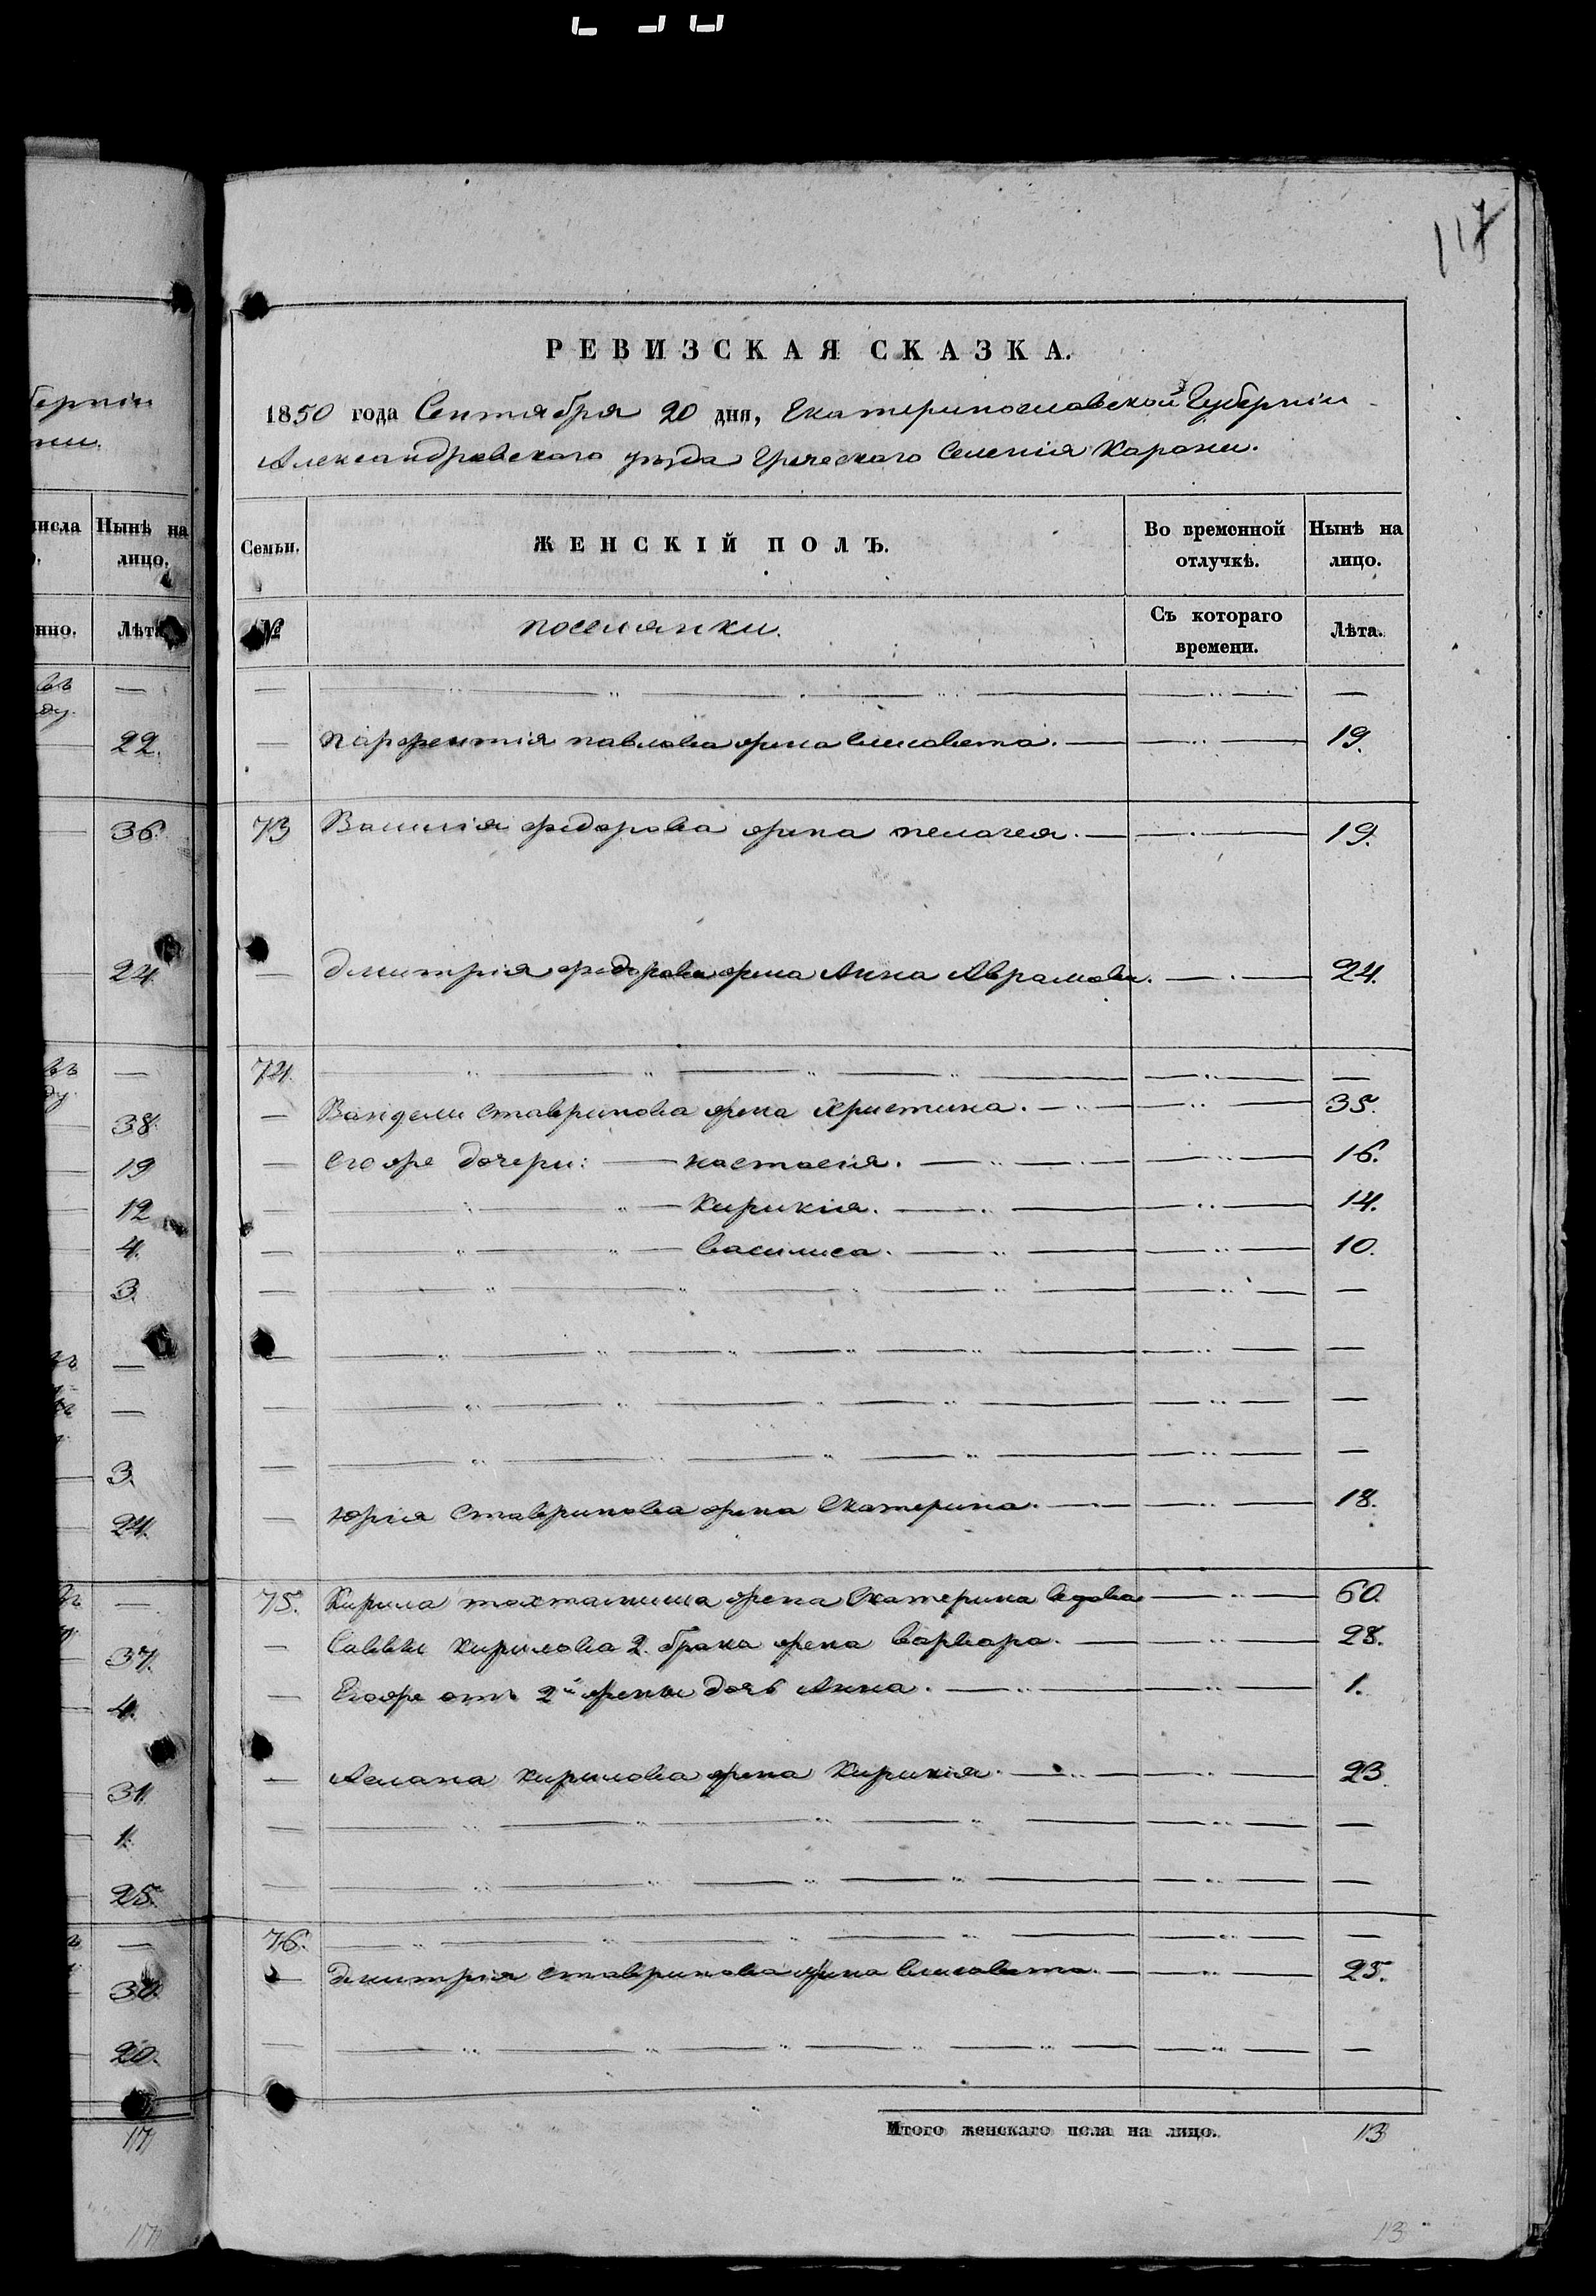 117
РЕВИЗСКАЯ СКАЗКА.
1850 года Сентября 20 дня, Екатеринославской Губерніи
Александровскаго уѣзда Греческаго Селенія Карани.
Семьи. ЖЕНСКІЙ ПОЛЪ. Во временной отлучкѣ. Нынѣ на лицо.
№ поселянки. Съ котораго времени. Лѣта.
— — — —
— Парфентія павлова жена Елисавета. — 19.
73 Василія федорова жена пелагея. — 19.
— Дмитрія федорова жена Анна Аврамова. — 24.
74. — — —
— Вангели Ставринова жена Христина. — 35.
— Его же дочери: — настасія. — 16.
— — Кирикія. — 14.
— — Василиса. — 10.
— — — —
— — — —
— — — —
— — — —
— Юрія Ставринова жена Екатерина. — 18.
75. Кирила тахтамыша жена Екатерина вдова — 60.
— Саввы Кирилова 2. брака жена варвара. — 28.
— Егоже отъ 2й жены дочь Анна. — 1.
— Аслана Кирилова жена Кирикія. — 23.
— — — —
— — — —
76. — — —
— Дмитрія Ставринова жена Елисавета. — 25.
— — — —
Итого женскаго пола на лицо. 13
13
берніи
числа Нынѣ на лицо.
нно. Лѣта
—
22.
36.
24.
—
38.
19
12
4.
3.
—
—
3.
24.
—
37.
4.
31.
1.
25.
—
30.
20.
17
17